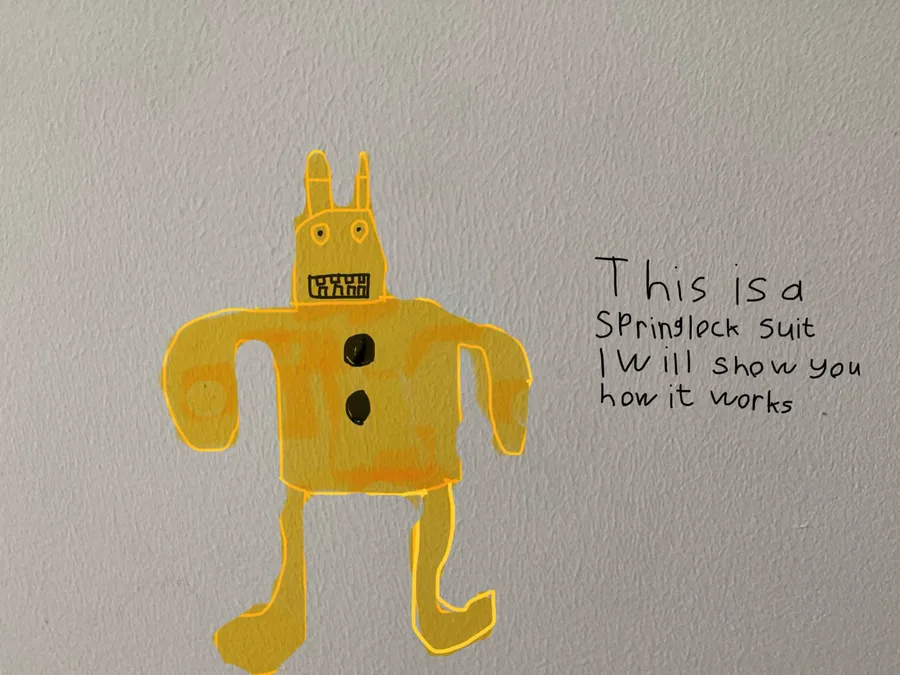 This is a
Springlock suit
I Will show you
how it works